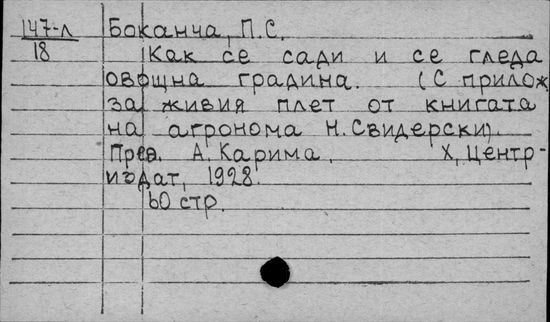 147-л Боканча, П.С.
18 Как се сади и се гледа
овощна градина. (С прилож.
за живия плет от книгата
на агронома Н. Свидерски).
Прев. А. Карима. Х, Центр-
издат, 1928.
60 стр.